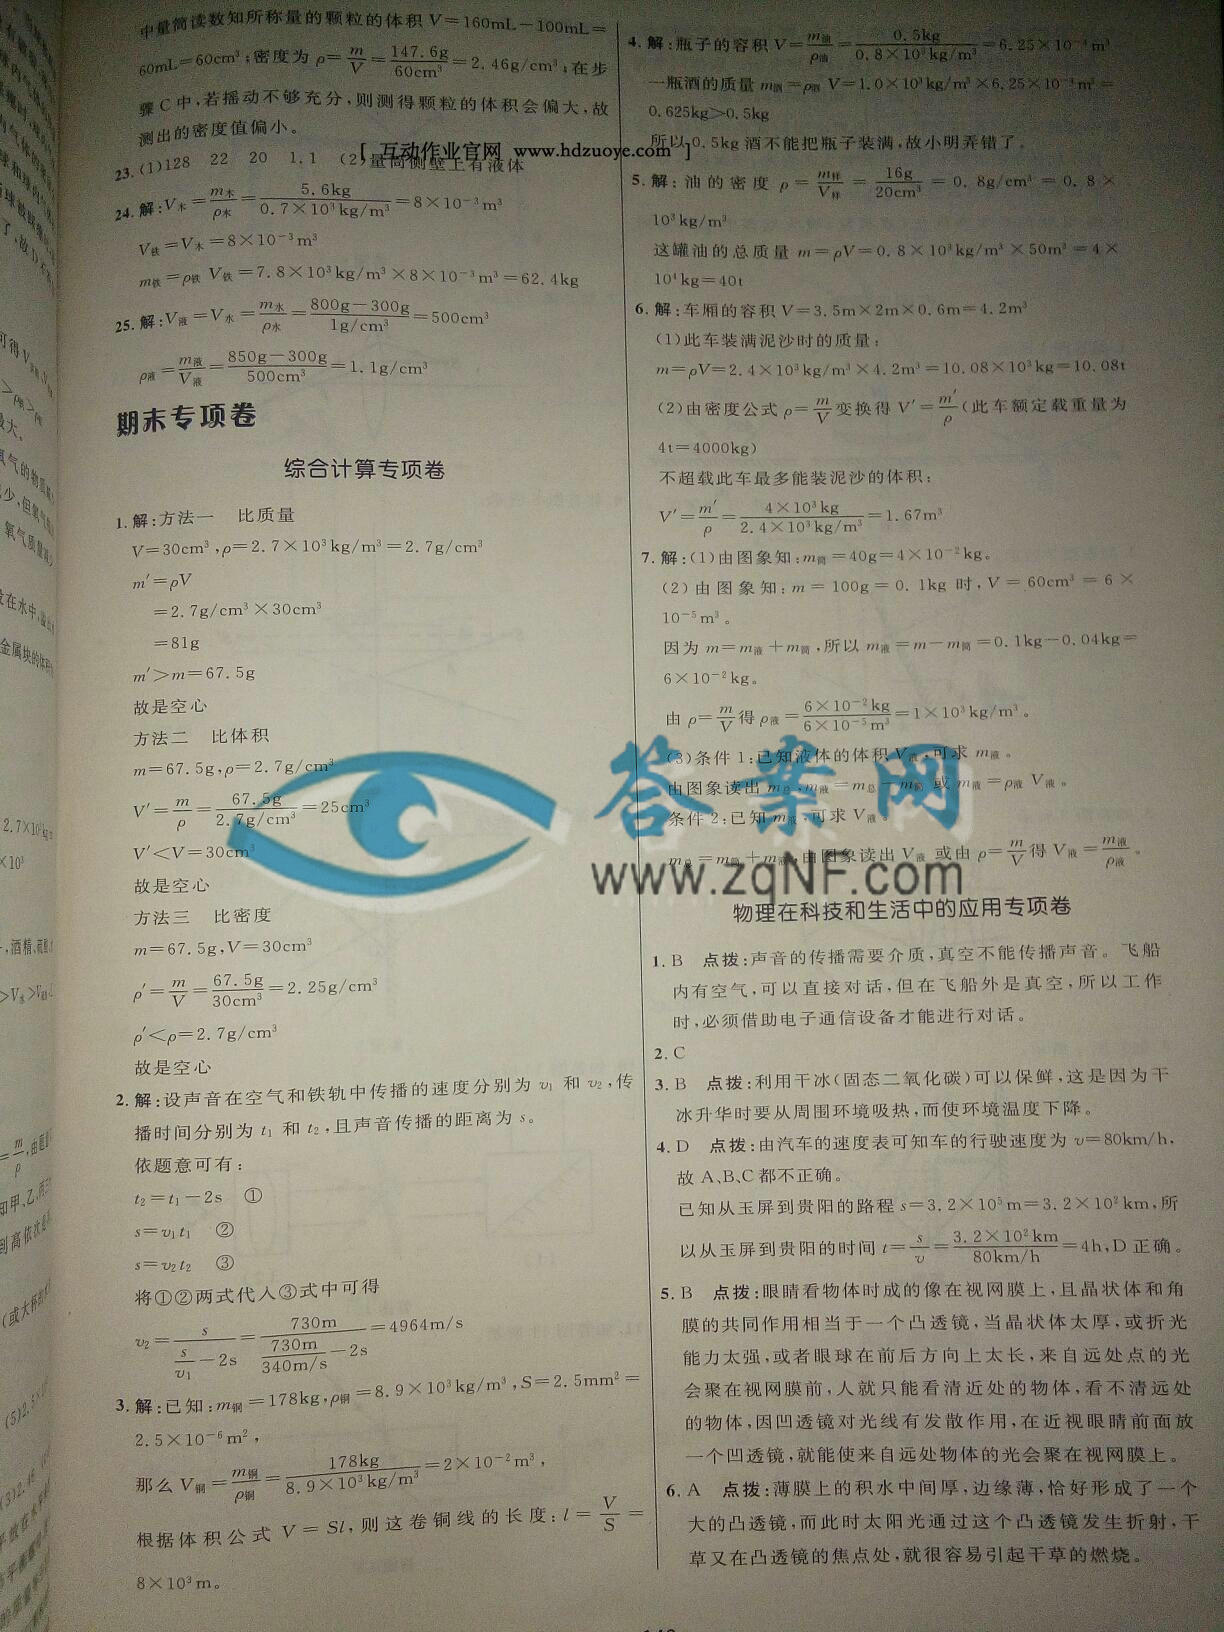 中量筒读数知所称量的颗粒的体积V=160mL-100mL=
60mL=60cm³;密度为ρ=m/V=147.6g/60cm³=2.46g/cm³;在步
骤C中,若摇动不够充分,则测得颗粒的体积会偏大,故
测出的密度值偏小。
[ 互动作业官网 www.hdzuoye.com ]
23.(1)128 22 20 1.1 (2)量筒侧壁上有液体
24.解:V木=m木/ρ木=5.6kg/0.7×10³kg/m³=8×10⁻³m³
V铁=V木=8×10⁻³m³
m铁=ρ铁V铁=7.8×10³kg/m³×8×10⁻³m³=62.4kg
25.解:V液=V水=m水/ρ水=800g-300g/1g/cm³=500cm³
ρ液=m液/V液=850g-300g/500cm³=1.1g/cm³
期末专项卷
综合计算专项卷
1.解:方法一 比质量
V=30cm³,ρ=2.7×10³kg/m³=2.7g/cm³
m′=ρV
=2.7g/cm³×30cm³
=81g
m′>m=67.5g
故是空心
方法二 比体积
m=67.5g,ρ=2.7g/cm³
V′=m/ρ=67.5g/2.7g/cm³=25cm³
V′<V=30cm³
故是空心
方法三 比密度
m=67.5g,V=30cm³
ρ′=m/V=67.5g/30cm³=2.25g/cm³
ρ′<ρ=2.7g/cm³
故是空心
2.解:设声音在空气和铁轨中传播的速度分别为v₁和v₂,传
播时间分别为t₁和t₂,且声音传播的距离为s。
依题意可有:
t₂=t₁-2s ①
s=v₁t₁ ②
s=v₂t₂ ③
将①②两式代人③式中可得
v₂=s/(s/v₁-2s)=730m/(730m/340m/s-2s)=4964m/s
3.解:已知:m铜=178kg,ρ铜=8.9×10³kg/m³,S=2.5mm²=
2.5×10⁻⁶m²,
那么V铜=m铜/ρ铜=178kg/8.9×10³kg/m³=2×10⁻²m³,
根据体积公式V=Sl,则这卷铜线的长度:l=V/S=
8×10³m。
4.解:瓶子的容积V=m油/ρ油=0.5kg/0.8×10³kg/m³=6.25×10⁻⁴m³
一瓶酒的质量m酒=ρ酒V=1.0×10³kg/m³×6.25×10⁻⁴m³=
0.625kg>0.5kg
所以0.5kg酒不能把瓶子装满,故小明弄错了。
5.解:油的密度ρ=m样/V样=16g/20cm³=0.8g/cm³=0.8×
10³kg/m³
这罐油的总质量m=ρV=0.8×10³kg/m³×50m³=4×
10⁴kg=40t
6.解:车厢的容积V=3.5m×2m×0.6m=4.2m³
(1)此车装满泥沙时的质量:
m=ρV=2.4×10³kg/m³×4.2m³=10.08×10³kg=10.08t
(2)由密度公式ρ=m/V变换得V′=m′/ρ(此车额定载重量为
4t=4000kg)
不超载此车最多能装泥沙的体积:
V′=m′/ρ=4×10³kg/2.4×10³kg/m³=1.67m³
7.解:(1)由图象知:m筒=40g=4×10⁻²kg。
(2)由图象知:m=100g=0.1kg时,V=60cm³=6×
10⁻⁵m³。
因为m=m液+m筒,所以m液=m-m筒=0.1kg-0.04kg=
6×10⁻²kg。
由ρ=m/V得ρ液=6×10⁻²kg/6×10⁻⁵m³=1×10³kg/m³。
(3)条件1:已知液体的体积V液,可求m液。
由图象读出m总,m液=m总-m筒或m液=ρ液V液。
条件2:已知m液,可求V液。
m总=m筒+m液,由图象读出V液或由ρ=m/V得V液=m液/ρ液。
答案网
www.zqNF.com
物理在科技和生活中的应用专项卷
1.B 点拨:声音的传播需要介质,真空不能传播声音。飞船
内有空气,可以直接对话,但在飞船外是真空,所以工作
时,必须借助电子通信设备才能进行对话。
2.C
3.B 点拨:利用干冰(固态二氧化碳)可以保鲜,这是因为干
冰升华时要从周围环境吸热,而使环境温度下降。
4.D 点拨:由汽车的速度表可知车的行驶速度为v=80km/h,
故A、B、C都不正确。
已知从玉屏到贵阳的路程s=3.2×10⁵m=3.2×10²km,所
以从玉屏到贵阳的时间t=s/v=3.2×10²km/80km/h=4h,D正确。
5.B 点拨:眼睛看物体时成的像在视网膜上,且晶状体和角
膜的共同作用相当于一个凸透镜,当晶状体太厚,或折光
能力太强,或者眼球在前后方向上太长,来自远处点的光
会聚在视网膜前,人就只能看清近处的物体,看不清远处
的物体,因凹透镜对光线有发散作用,在近视眼睛前面放
一个凹透镜,就能使来自远处物体的光会聚在视网膜上。
6.A 点拨:薄膜上的积水中间厚,边缘薄,恰好形成了一个
大的凸透镜,而此时太阳光通过这个凸透镜发生折射,干
草又在凸透镜的焦点处,就很容易引起干草的燃烧。